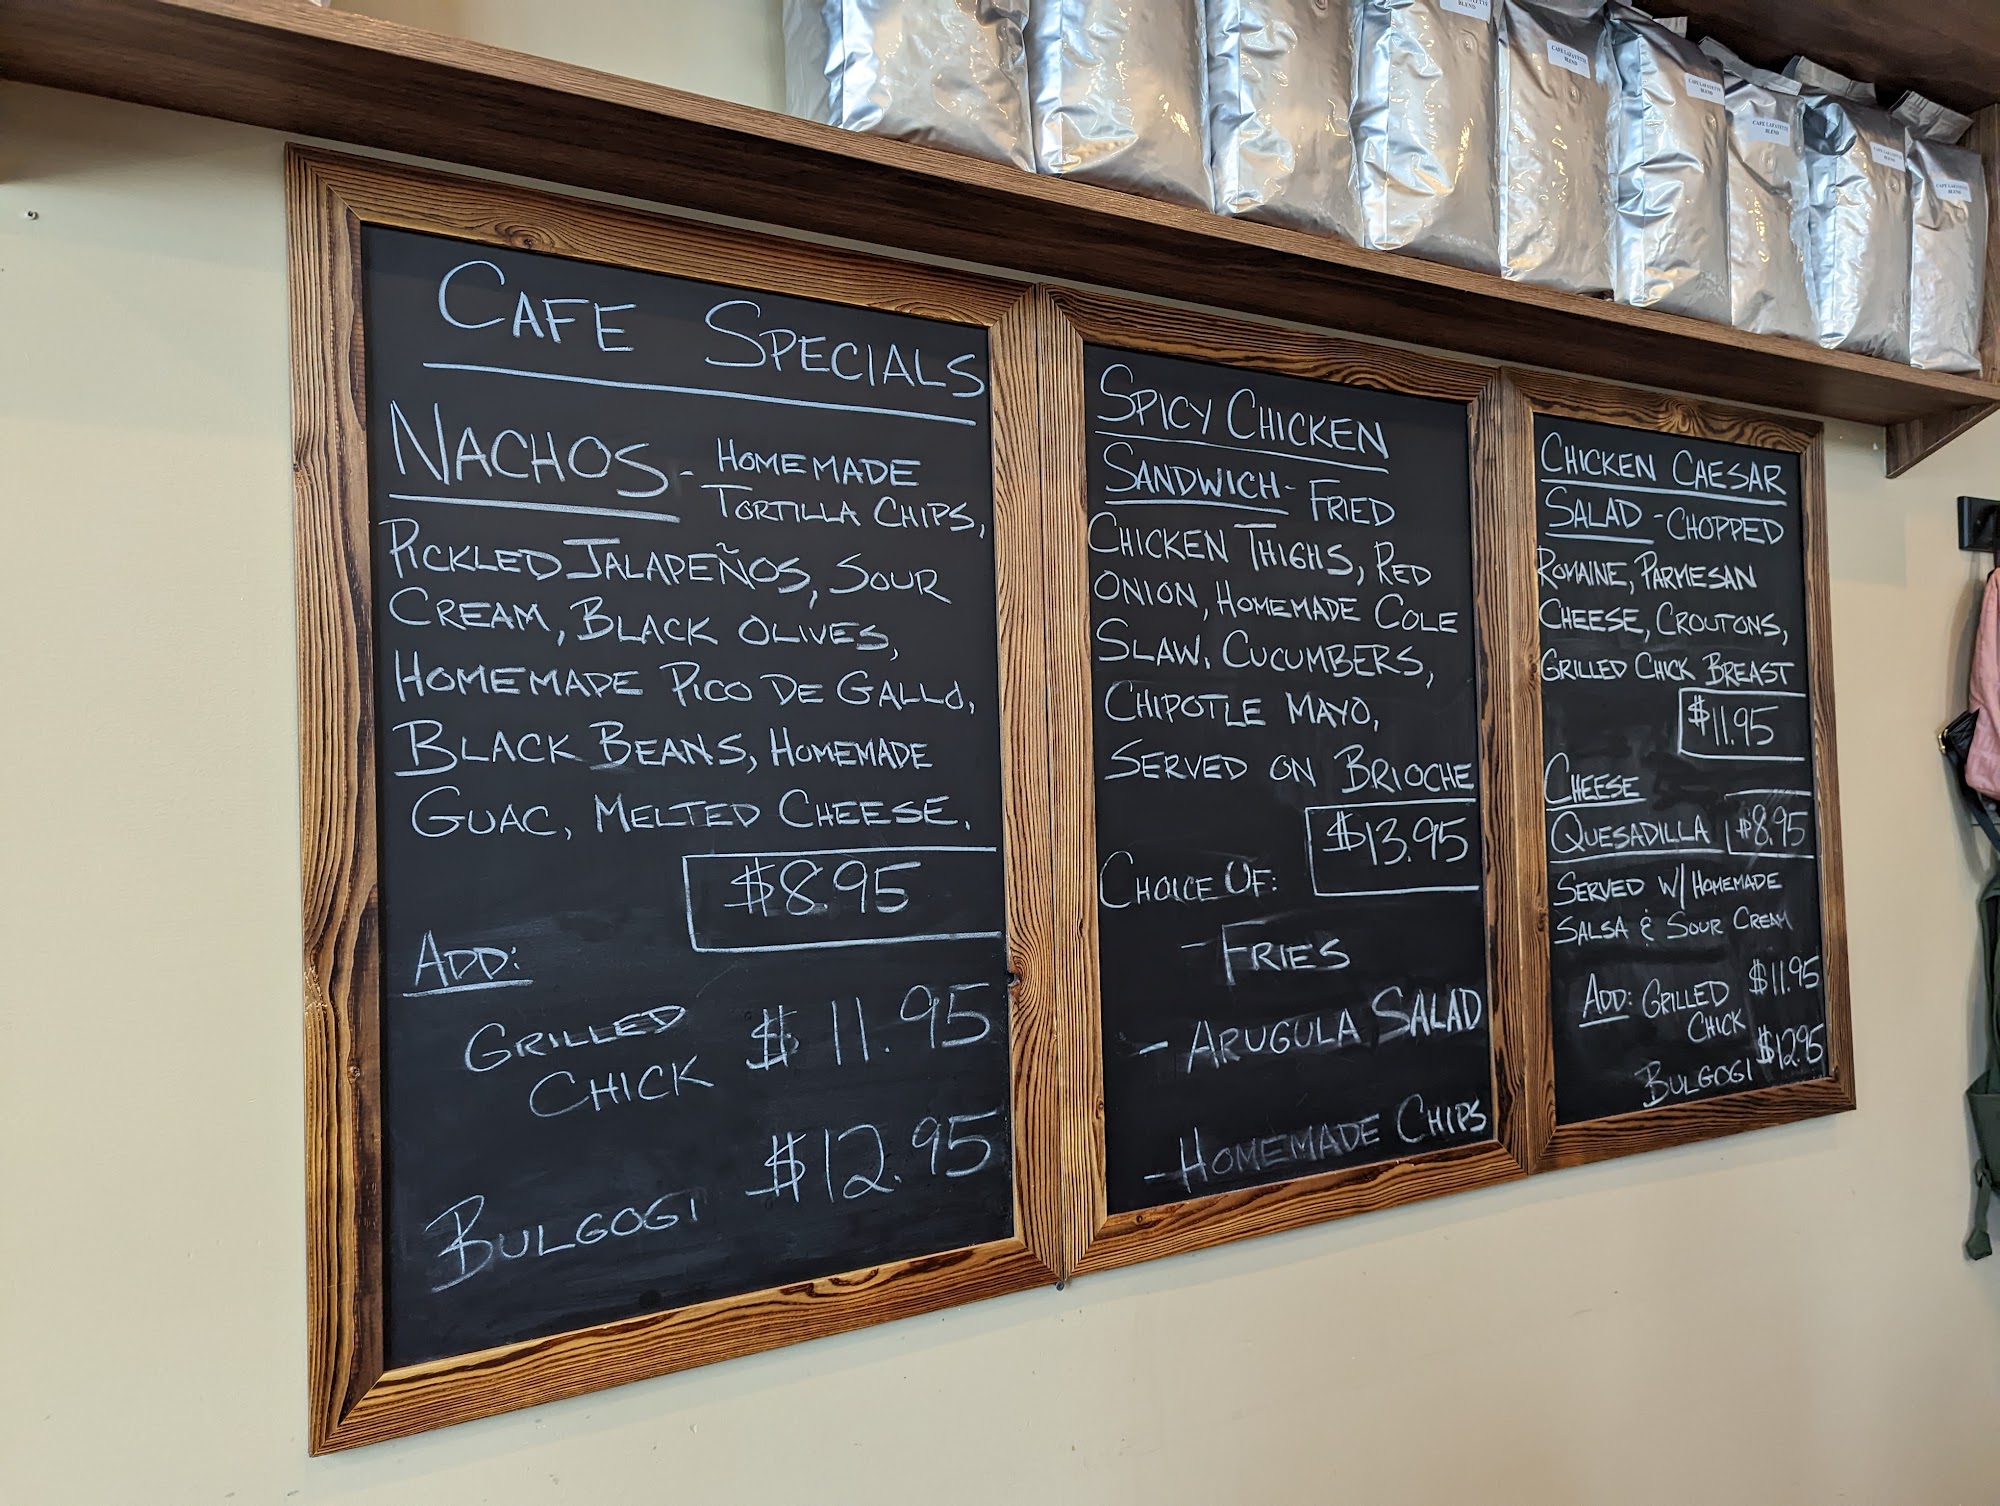 CAFE LAFAYETTE
BLEND
CAFE LAFAYETTE
BLEND
CAFE LAFAYETTE
BLEND
CAFE LAFAYETTE
BLEND
CAFE LAFAYETTE
BLEND
CAFE SPECIALS
NACHOS - HOMEMADE
TORTILLA CHIPS,
PICKLED JALAPEÑOS, SOUR
CREAM, BLACK OLIVES,
HOMEMADE PICO DE GALLO,
BLACK BEANS, HOMEMADE
GUAC, MELTED CHEESE.
$8.95
ADD:
GRILLED
CHICK $11.95
BULGOGI $12.95
SPICY CHICKEN
SANDWICH - FRIED
CHICKEN THIGHS, RED
ONION, HOMEMADE COLE
SLAW, CUCUMBERS,
CHIPOTLE MAYO,
SERVED ON BRIOCHE
$13.95
CHOICE OF:
- FRIES
- ARUGULA SALAD
- HOMEMADE CHIPS
CHICKEN CAESAR
SALAD - CHOPPED
ROMAINE, PARMESAN
CHEESE, CROUTONS,
GRILLED CHICK BREAST
$11.95
CHEESE
QUESADILLA $8.95
SERVED W/ HOMEMADE
SALSA & SOUR CREAM
ADD: GRILLED $11.95
CHICK
BULGOGI $12.95